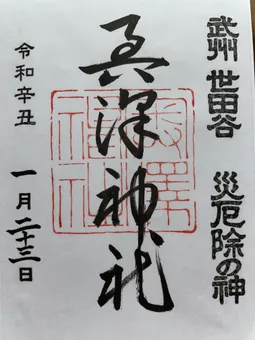 武州 世田谷 災厄除の神
奥澤神社
令和辛丑 一月二十三日